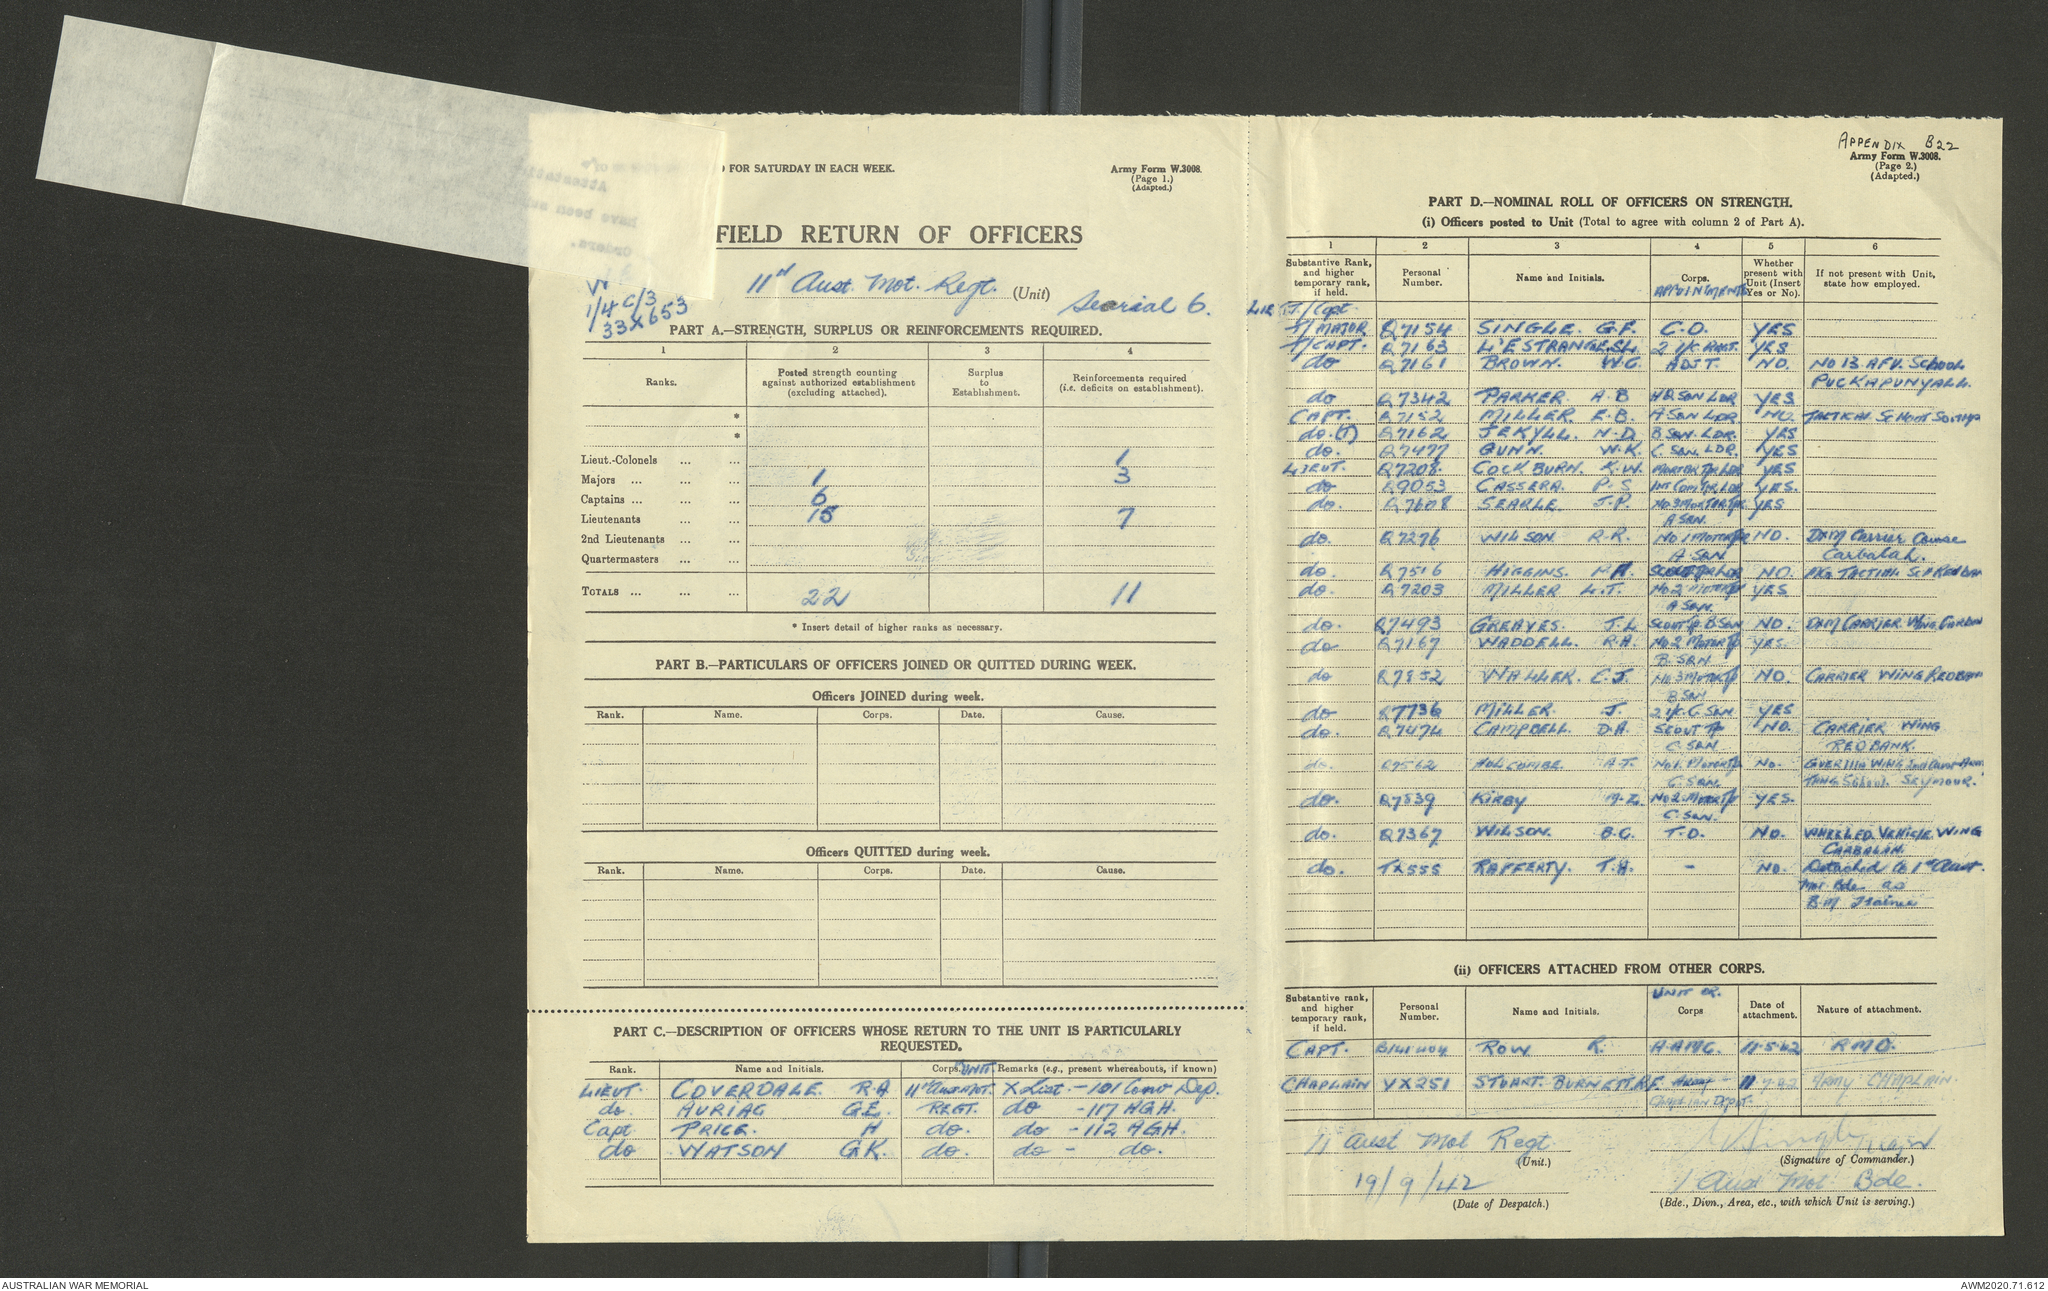 D FOR SATURDAY IN EACH WEEK.
Army Form W.3008.
(Page 1.)
(Adapted.)
FIELD RETURN OF OFFICERS
11th Aust. Mot. Regt. (Unit)
Searial 6.
1/4 C/3
33X653
PART A.—STRENGTH, SURPLUS OR REINFORCEMENTS REQUIRED.
1 2 3 4
Ranks. Posted strength counting against authorized establishment (excluding attached). Surplus to Establishment. Reinforcements required (i.e. deficits on establishment).
*
*
Lieut.-Colonels ... ... 1
Majors ... ... ... 1 3
Captains ... ... ... 6
Lieutenants ... ... 15 7
2nd Lieutenants ... ...
Quartermasters ... ...
TOTALS ... ... ... 22 11
* Insert detail of higher ranks as necessary.
PART B.—PARTICULARS OF OFFICERS JOINED OR QUITTED DURING WEEK.
Officers JOINED during week.
Rank. Name. Corps. Date. Cause.
Officers QUITTED during week.
Rank. Name. Corps. Date. Cause.
PART C.—DESCRIPTION OF OFFICERS WHOSE RETURN TO THE UNIT IS PARTICULARLY
REQUESTED.
Rank. Name and Initials. Corps. UNIT Remarks (e.g., present whereabouts, if known)
LIEUT. COVERDALE R A 11th Aust Mot. X List - 101 Conv Dep.
do. AURIAC G E. REGT. do - 117 AGH.
Capt PRICE. H do. do - 112 AGH.
do WATSON G K. do. do - do.
APPENDIX B22
Army Form W.3008.
(Page 2.)
(Adapted.)
PART D.—NOMINAL ROLL OF OFFICERS ON STRENGTH.
(i) Officers posted to Unit (Total to agree with column 2 of Part A).
1 2 3 4 5 6
Substantive Rank, and higher temporary rank, if held. Personal Number. Name and Initials. Corps. APPOINTMENTS Whether present with Unit (Insert Yes or No). If not present with Unit, state how employed.
T/Capt
T/MAJOR Q7154 SINGLE. G.F. C.O. YES
T/CAPT. Q7163 L'ESTRANGE S.L. 2 I/C REGT. YES
do Q7161 BROWN. W.G. ADJT. NO. NO 13 A.F.V. SCHOOL
PUCKAPUNYALL.
do Q7342 PARKER A.B HQ SQN LDR YES
CAPT. Q7152 MILLER. E.B. A SQN LDR. NO. TACTICAL SCHOOL
do.(T) Q7162 JEKYLL. N.D. B SQN. LDR. YES
do. Q7477 GUNN. W.K. C. SQN. LDR. YES
LIEUT. Q7208 COCKBURN. K.W. MORTAR TP LDR YES
do Q9053 CASSERA. P.S YES.
do. Q7608 SEARLE. J.P. No. 3 MOTOR TP YES
A SQN.
do. Q7276 WILSON R.R. NO 1 MOTOR TP NO. D&M Carrier Course
A SQN Carbalah.
do. Q7516 HIGGINS. NO.
do. Q7203 MILLER L.T. NO 2 MOTOR TP YES
A SQN.
do. Q7493 GREAVES. J.L SCOUT TP B SQN NO. D&M CARRIER WING
do Q7167 WADDELL. R.A. NO 2 MOTOR TP YES.
B. SQN
do Q7852 WALLER. C.J. NO. 3 MOTOR TP NO. CARRIER WING REDBANK
B SQN
do Q7736 MILLER. J. 2 I/C. C. SQN YES
do. Q7474 CAMPBELL. D.A. SCOUT TP NO. CARRIER WING
C. SQN REDBANK.
do. Q7562 HOLCOMBE. A.T. No 1. MOTOR TP No. GUERILLA WING
C. SQN. SCHOOL SEYMOUR.
do. Q7539 KIRBY M.L. NO 2. MOTOR TP YES.
C. SQN.
do. Q7367 WILSON. B.C. T.O. NO. WHEELED VEHICLE WING
CARBALAH.
do. TX555 RAFFERTY. T.A. - NO. Detached to 1st Aust.
Mot. Bde as
B.M Trainee
(ii) OFFICERS ATTACHED FROM OTHER CORPS.
Substantive rank, and higher temporary rank, if held. Personal Number. Name and Initials. UNIT OR. Corps Date of attachment. Nature of attachment.
CAPT. ROW R. A.A.M.C. 11.5.42 R M O.
CHAPLAIN VX251 STUART BURNETT R E ARMY CHAPLAIN.
11 Aust Mot Regt
(Unit.)
Major
(Signature of Commander.)
19/9/42
(Date of Despatch.)
1 Aust Mot Bde.
(Bde., Divn., Area, etc., with which Unit is serving.)
AUSTRALIAN WAR MEMORIAL
AWM2020.71.612